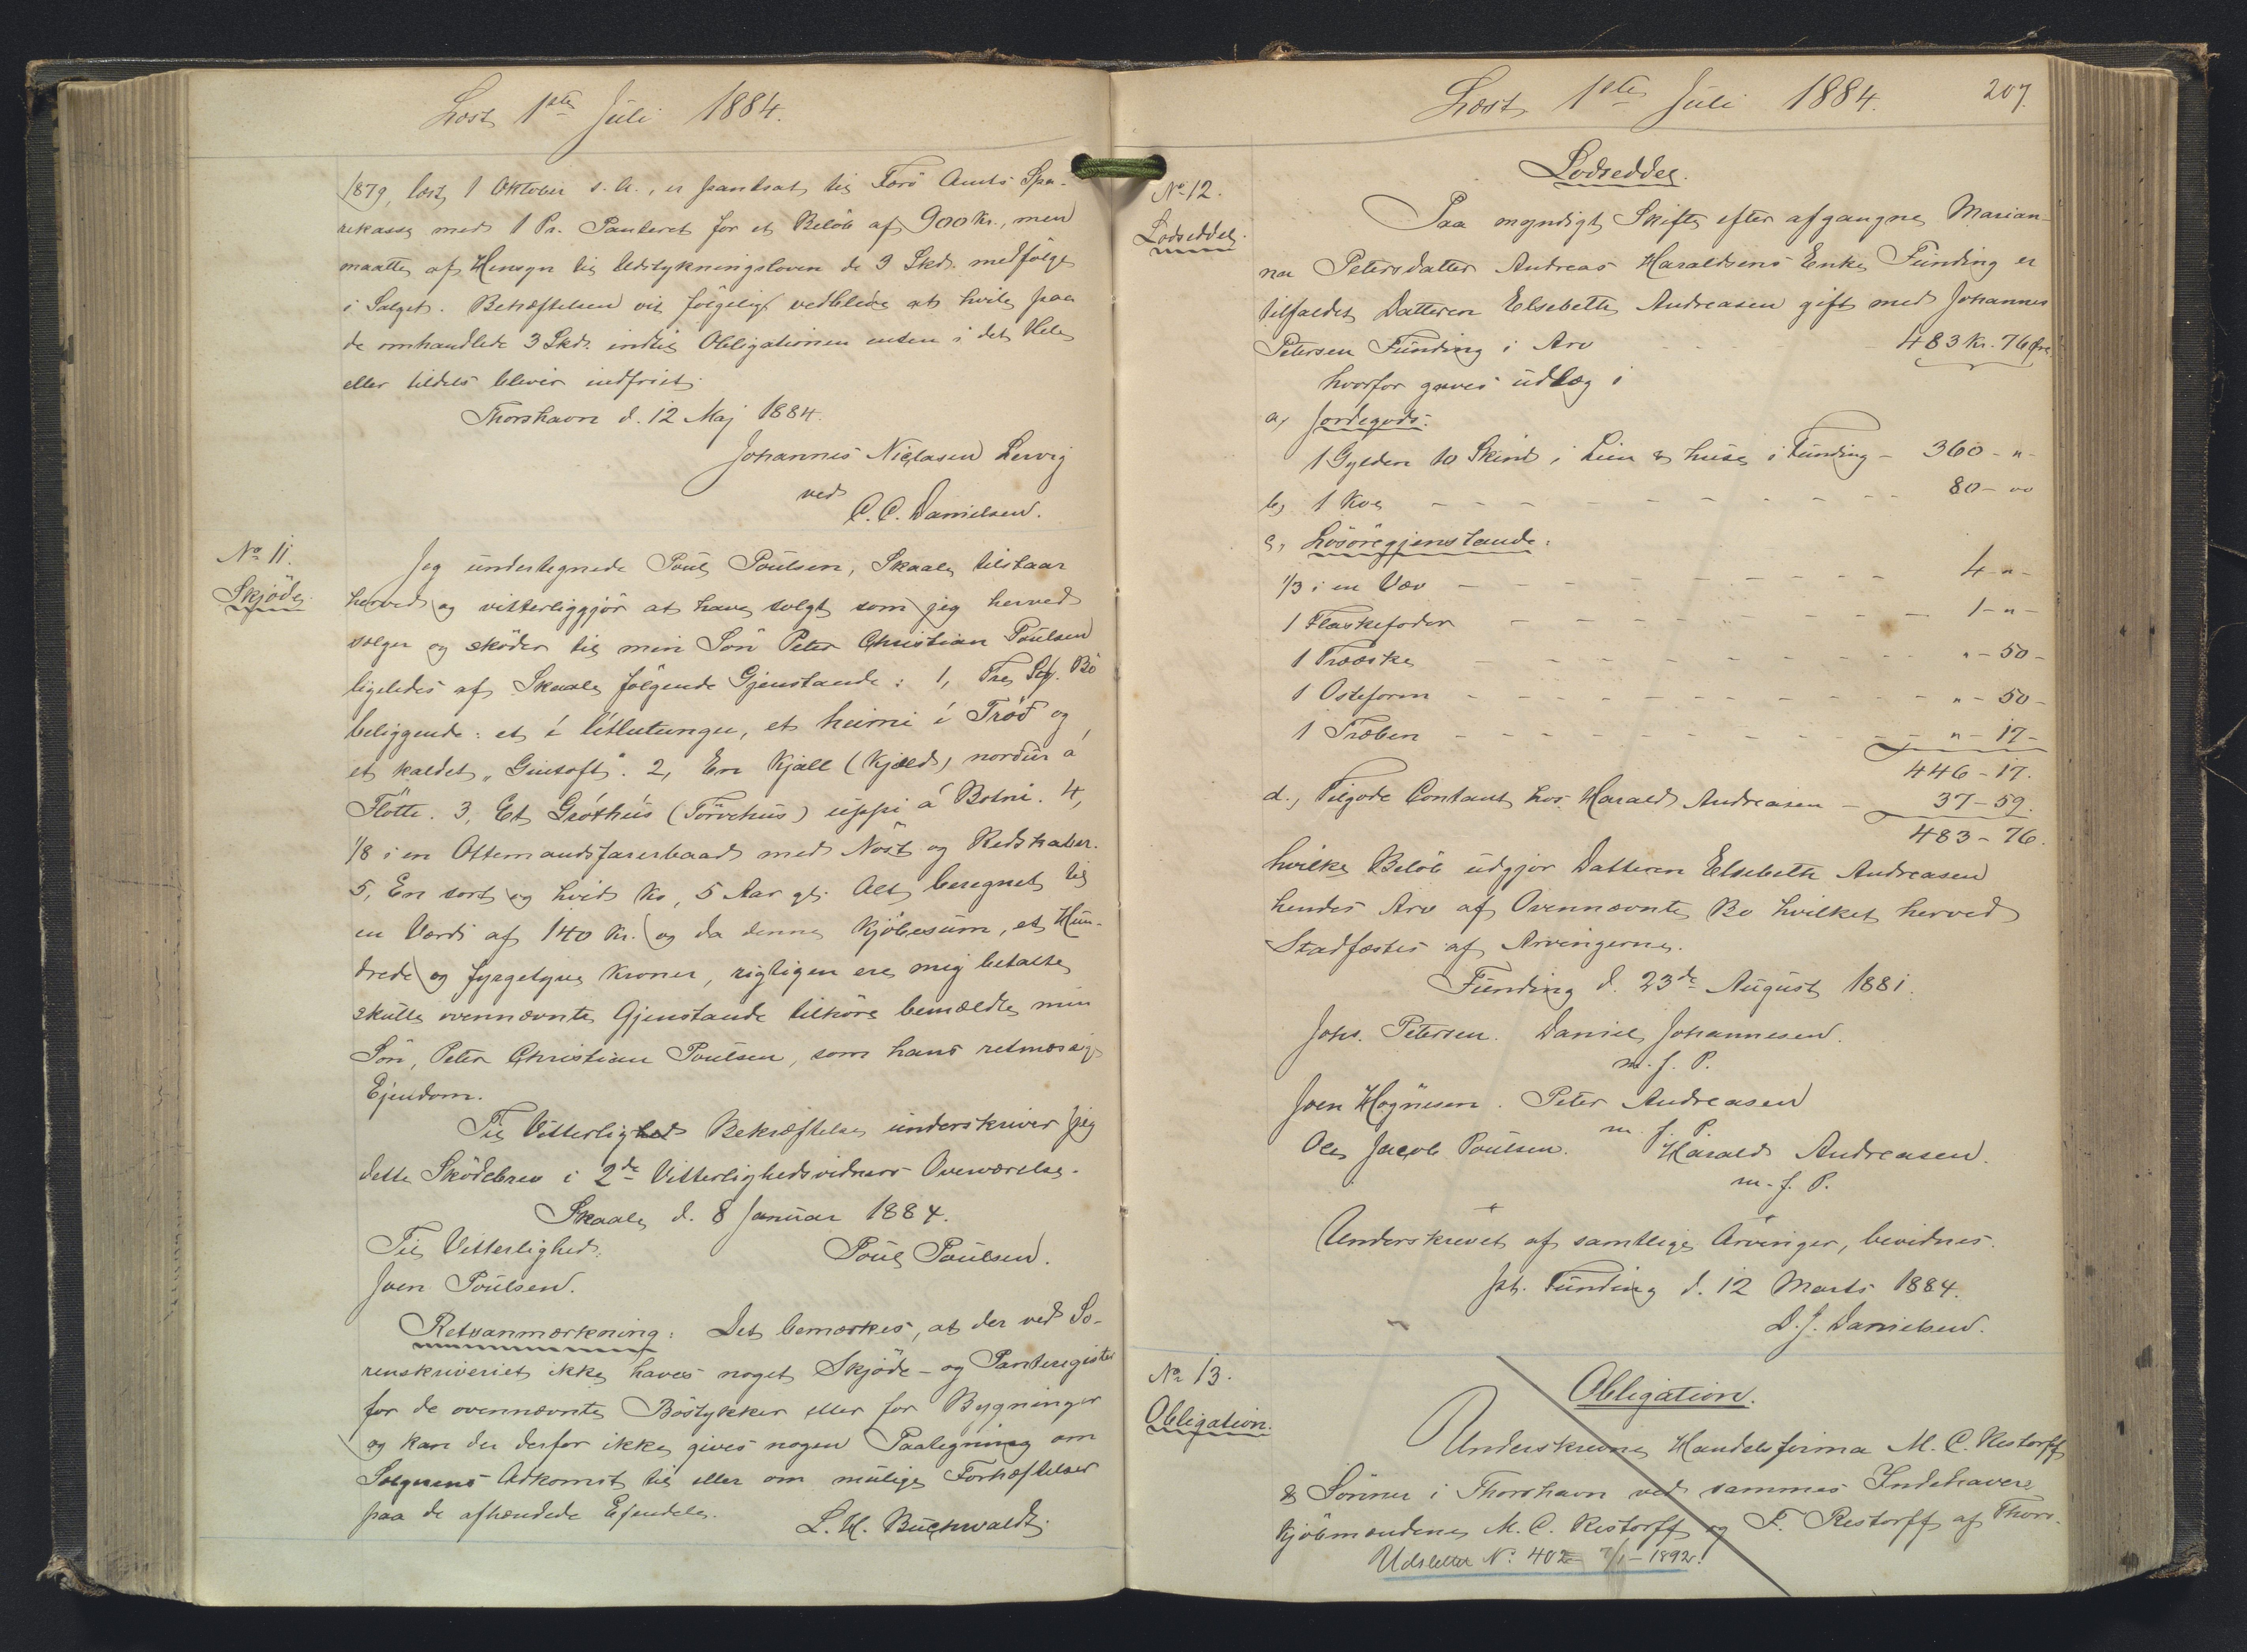 Læst 1ste Juli 1884.
1879, læst 1 Oktober s. A., er pantsat til Færö Amts Spa-
rekasse med 1 Pr. Panteret for et Belöb af 900 Kr., men
maatte af Hensyn til Udstykningsloven de 3 Skd. medfölge
i Salget. Behæftelsen vil fölgelig vedblive at hvile paa
de omhandlede 3 Skd. indtil Obligationen enten i det Hele
eller tildels bliver indfriet.
Thorshavn d. 12 Maj 1884.
Johannes Niclasen Lervig
ved
C. C. Danielsen.
No 11.
Skjöde.
Jeg undertegnede Poul Poulsen, Skaale tilstaar
herved og vitterliggjör at have solgt som jeg herved
sælger og sköder til min Sön Peter Christian Poulsen
ligeledes af Skaale fölgende Gjenstande: 1, Tre Stk. Bö
beliggende: et í lítlutungu, et heimi í Tröð og
et kaldet „Giutoft“. 2, En Kjall (Kjæld) norður á
Flötte. 3, Et Gróthús (Törvehus) uppi á Botni. 4,
1/8 i en Ottemandsfarerbaad med Nöst og Redskaber.
5, En sort og hvid Ko, 5 Aar gl. Alt beregnet til
en Værdi af 140 Kr. og da denne Kjöbesum, et Hun-
drede og fyrgetyve Kroner, rigtigen ere mig betalte
skulle ovennævnte Gjenstande tilhöre bemældte min
Sön, Peter Christian Poulsen, som hans retmæsige
Ejendom.
Til Vitterlighed Bekræftelse underskriver jeg
dette Sködebrev i 2de Vitterlighedsvidners Overværelse.
Skaale d. 8 Januar 1884.
Til Vitterlighed. Poul Poulsen.
Joen Poulsen.
Retsanmærkning: Det bemærkes, at der ved So-
renskriveriet ikke haves noget Skjöde- og Panteregister
for de ovennævnte Böstykker eller for Bygninger
og kan der derfor ikke gives nogen Paategning om
Sælgerens Adkomst til eller om mulige Forhæftelser
paa de afhændede Ejendele.
L. H. Buchwaldt.
Læst 1ste Juli 1884. 207.
No 12.
Lodseddel.
Lodseddel.
Paa myndigt Skifte efter afgangne Marian-
na Petersdatter Andreas Haraldsens Enke Funding er
tilfaldet Datteren Elsebeth Andreasen gift med Johannes
Petersen Funding i Arv - - - 483 Kr. 76 Øre
hvorfor gaves udlæg i
a, Jordegods:
1 Gylden 10 Skind i Liur & huse i Funding - 360 - " -
b, 1 Koe - - - 80 - 00
c, Lösöregjenstande:
1/3 i en Væv - - - 4 - " -
1 Flaskefoder - - - 1 - " -
1 Træske - - - " - 50 -
1 Osteform - - - " - 50 -
1 Træben - - - " - 17 -
446 - 17.
d., Tilgode Contant hos Harald Andreasen - 37 - 59.
483 - 76.
hvilke Belöb udgjør Datteren Elsebeth Andreasen
hendes Arv af Ovennævnte Bo hvilket herved
Stadfæstes af Arvingerne.
Funding d. 23de August 1881.
Johs. Petersen. Daniel Johannesen.
m. f. P.
Joen Högnesen. Peter Andreasen
m. f. P.
Ole Jacob Poulsen. Harald Andreasen.
m. f. P.
Underskrevet af samtlige Arvinger, bevidnes.
pt. Funding d. 12 Marts 1884.
D. J. Danielsen.
No 13.
Obligation.
Obligation.
Underskrevne Handelsfirma M. C. Restorff
& Sönner i Thorshavn ved sammes Indehavere
Kjöbmændene M. C. Restorff og F. Restorff af Thors-
Udslettet No. 402 7/1 - 1892.